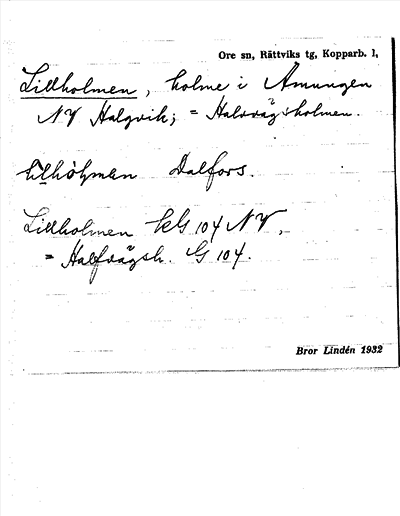 Ore sn, Rättviks tg, Kopparb. l,
Lillholmen, holme i Amungen
NV Halgvik; = Halvvägsholmen.
Dalfors.
Lillholmen kG 104 NV,
= Halfvägsh. G 104.
Bror Lindén 1932